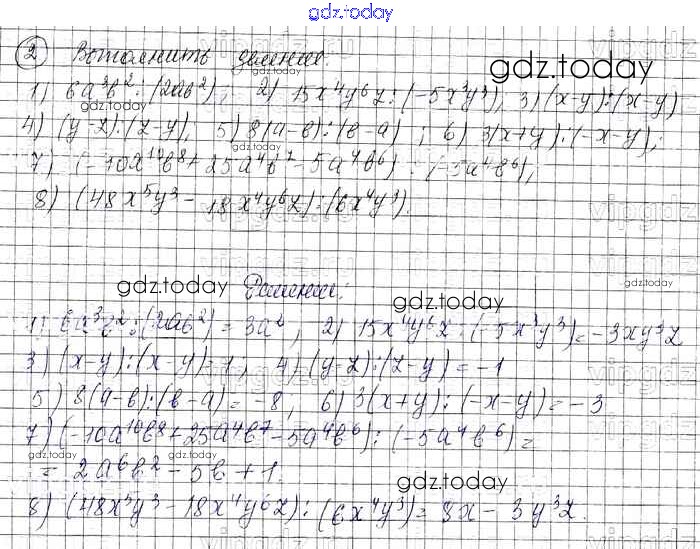 gdz.today
② Выполнить деление:
gdz.today
1) 6a³b² : (2ab²); 2) 15x⁴y⁶z : (-5x³y³), 3) (x-y) : (x-y)
gdz.today
4) (y-z) : (z-y), 5) 8(a-b) : (b-a) ; 6) 3(x+y) : (-x-y);
7) (-10a¹⁰b⁸ + 25a⁴b⁷ - 5a⁴b⁶) : (-5a⁴b⁶);
8) (48x⁵y³ - 18x⁴y⁶z) : (6x⁴y³).
gdz.today Решение:
gdz.today
1) 6a³b² : (2ab²) = 3a², 2) 15x⁴y⁶z : (-5x³y³) = -3xy³z
3) (x-y) : (x-y) = 1, 4) (y-z) : (z-y) = -1
5) 8(a-b) : (b-a) = -8, 6) 3(x+y) : (-x-y) = -3
7) (-10a¹⁰b⁸ + 25a⁴b⁷ - 5a⁴b⁶) : (-5a⁴b⁶) =
= 2a⁶b² - 5b + 1.
gdz.today
8) (48x⁵y³ - 18x⁴y⁶z) : (6x⁴y³) = 8x - 3y³z.